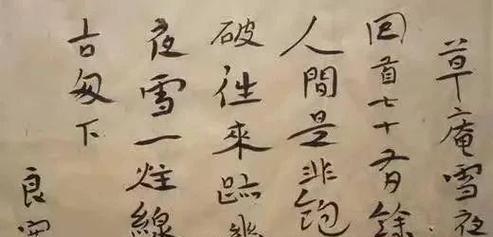 草庵雪夜
回首七十有餘
人間是非飽
破往來跡幽
夜雪一炷線
古匆下
良寛